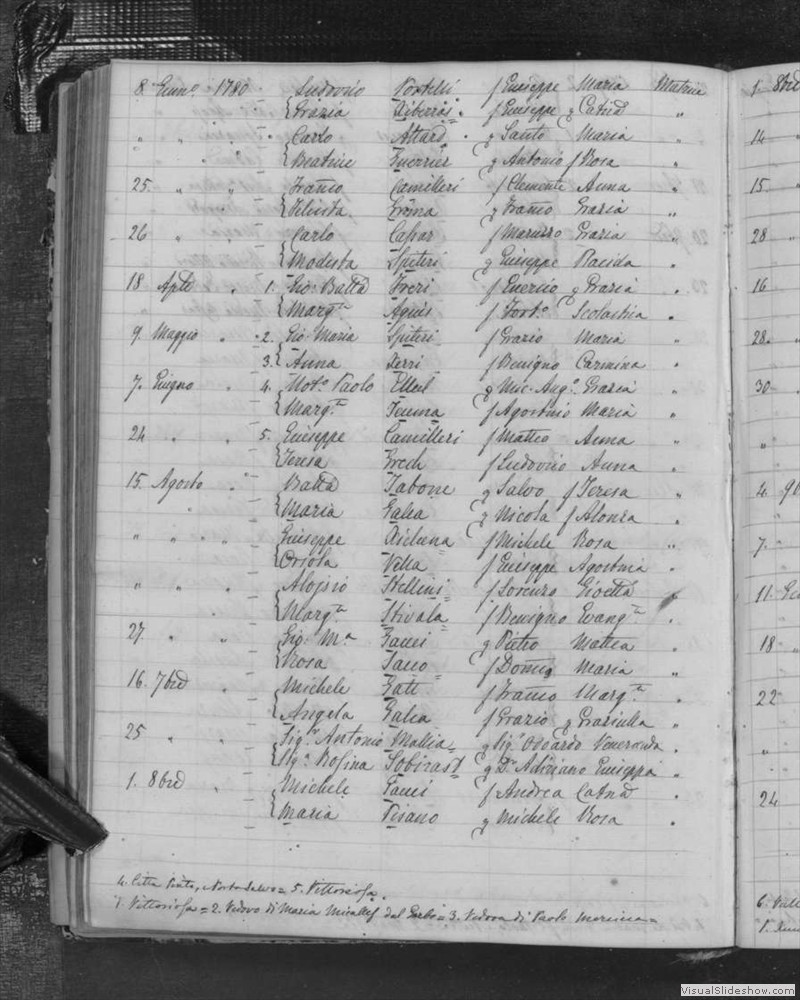 8 Genn.o 1780 Ludovico Portelli f Giuseppe Maria Matrice
Grazia f Giuseppe q Catnd "
" " " Carlo Attard q Santo Maria "
" " " Beatrice q Antonio f Rosa "
25. " " Franco Camilleri f Clemente Anna "
Felicita q Franco Grazia "
26 " Carlo Caspar Grazia "
Modesta Spiteri q Giuseppe Placida "
18 Aple " 1. Gio: Batta f Grazia "
Margta Agius f Fort.o Scolastica "
9. Maggio " 2. Gio: Maria Spiteri f Grazio Maria "
3. Anna f Benigno Carmina "
7. Giugno " 4. Not.o Paolo Ellul q Mic. Ang.o Grazia "
Margta f Agostino Maria "
24 " " 5. Giuseppe Camilleri f Matteo Anna "
Teresa Grech f Ludovico Anna "
15. Agosto " Batta Tabone q Salvo f Teresa "
" Maria Galea q Nicola f Alonza "
" " " Giuseppe Aicluna f Michele Rosa "
Orsola Vella f Giuseppe Agostina "
" " " Aloisio Stellini f Lorenzo Gioetta "
Margta Stivala f Benigno Evangta "
27. " " Gio: Ma Fauci q Pietro Mattea "
Rosa f Domco Maria "
16. 7bre " Michele Gatt f Franco Margta "
Angela Galea f Grazio q Graziulla "
25 " Sigr Antonio Mallia q Sigr Odoardo Veneranda "
Sga Rosina q Dr Adriano Giuseppa "
1. 8bre " Michele Fauci f Andrea Catna "
Maria Pisano q Michele Rosa "
4. Citta Pinto, = 5. Vittoriosa.
1. Vittoriosa = 2. Vedovo di Maria Micallef dal Garbo = 3. Vedova di Paolo =
1. 8bre
14 "
15 "
28 "
16
28. "
30 "
"
4. 9b
7. "
11. Ge
18 "
22
"
24
6. Vall
VisualSlideshow.com